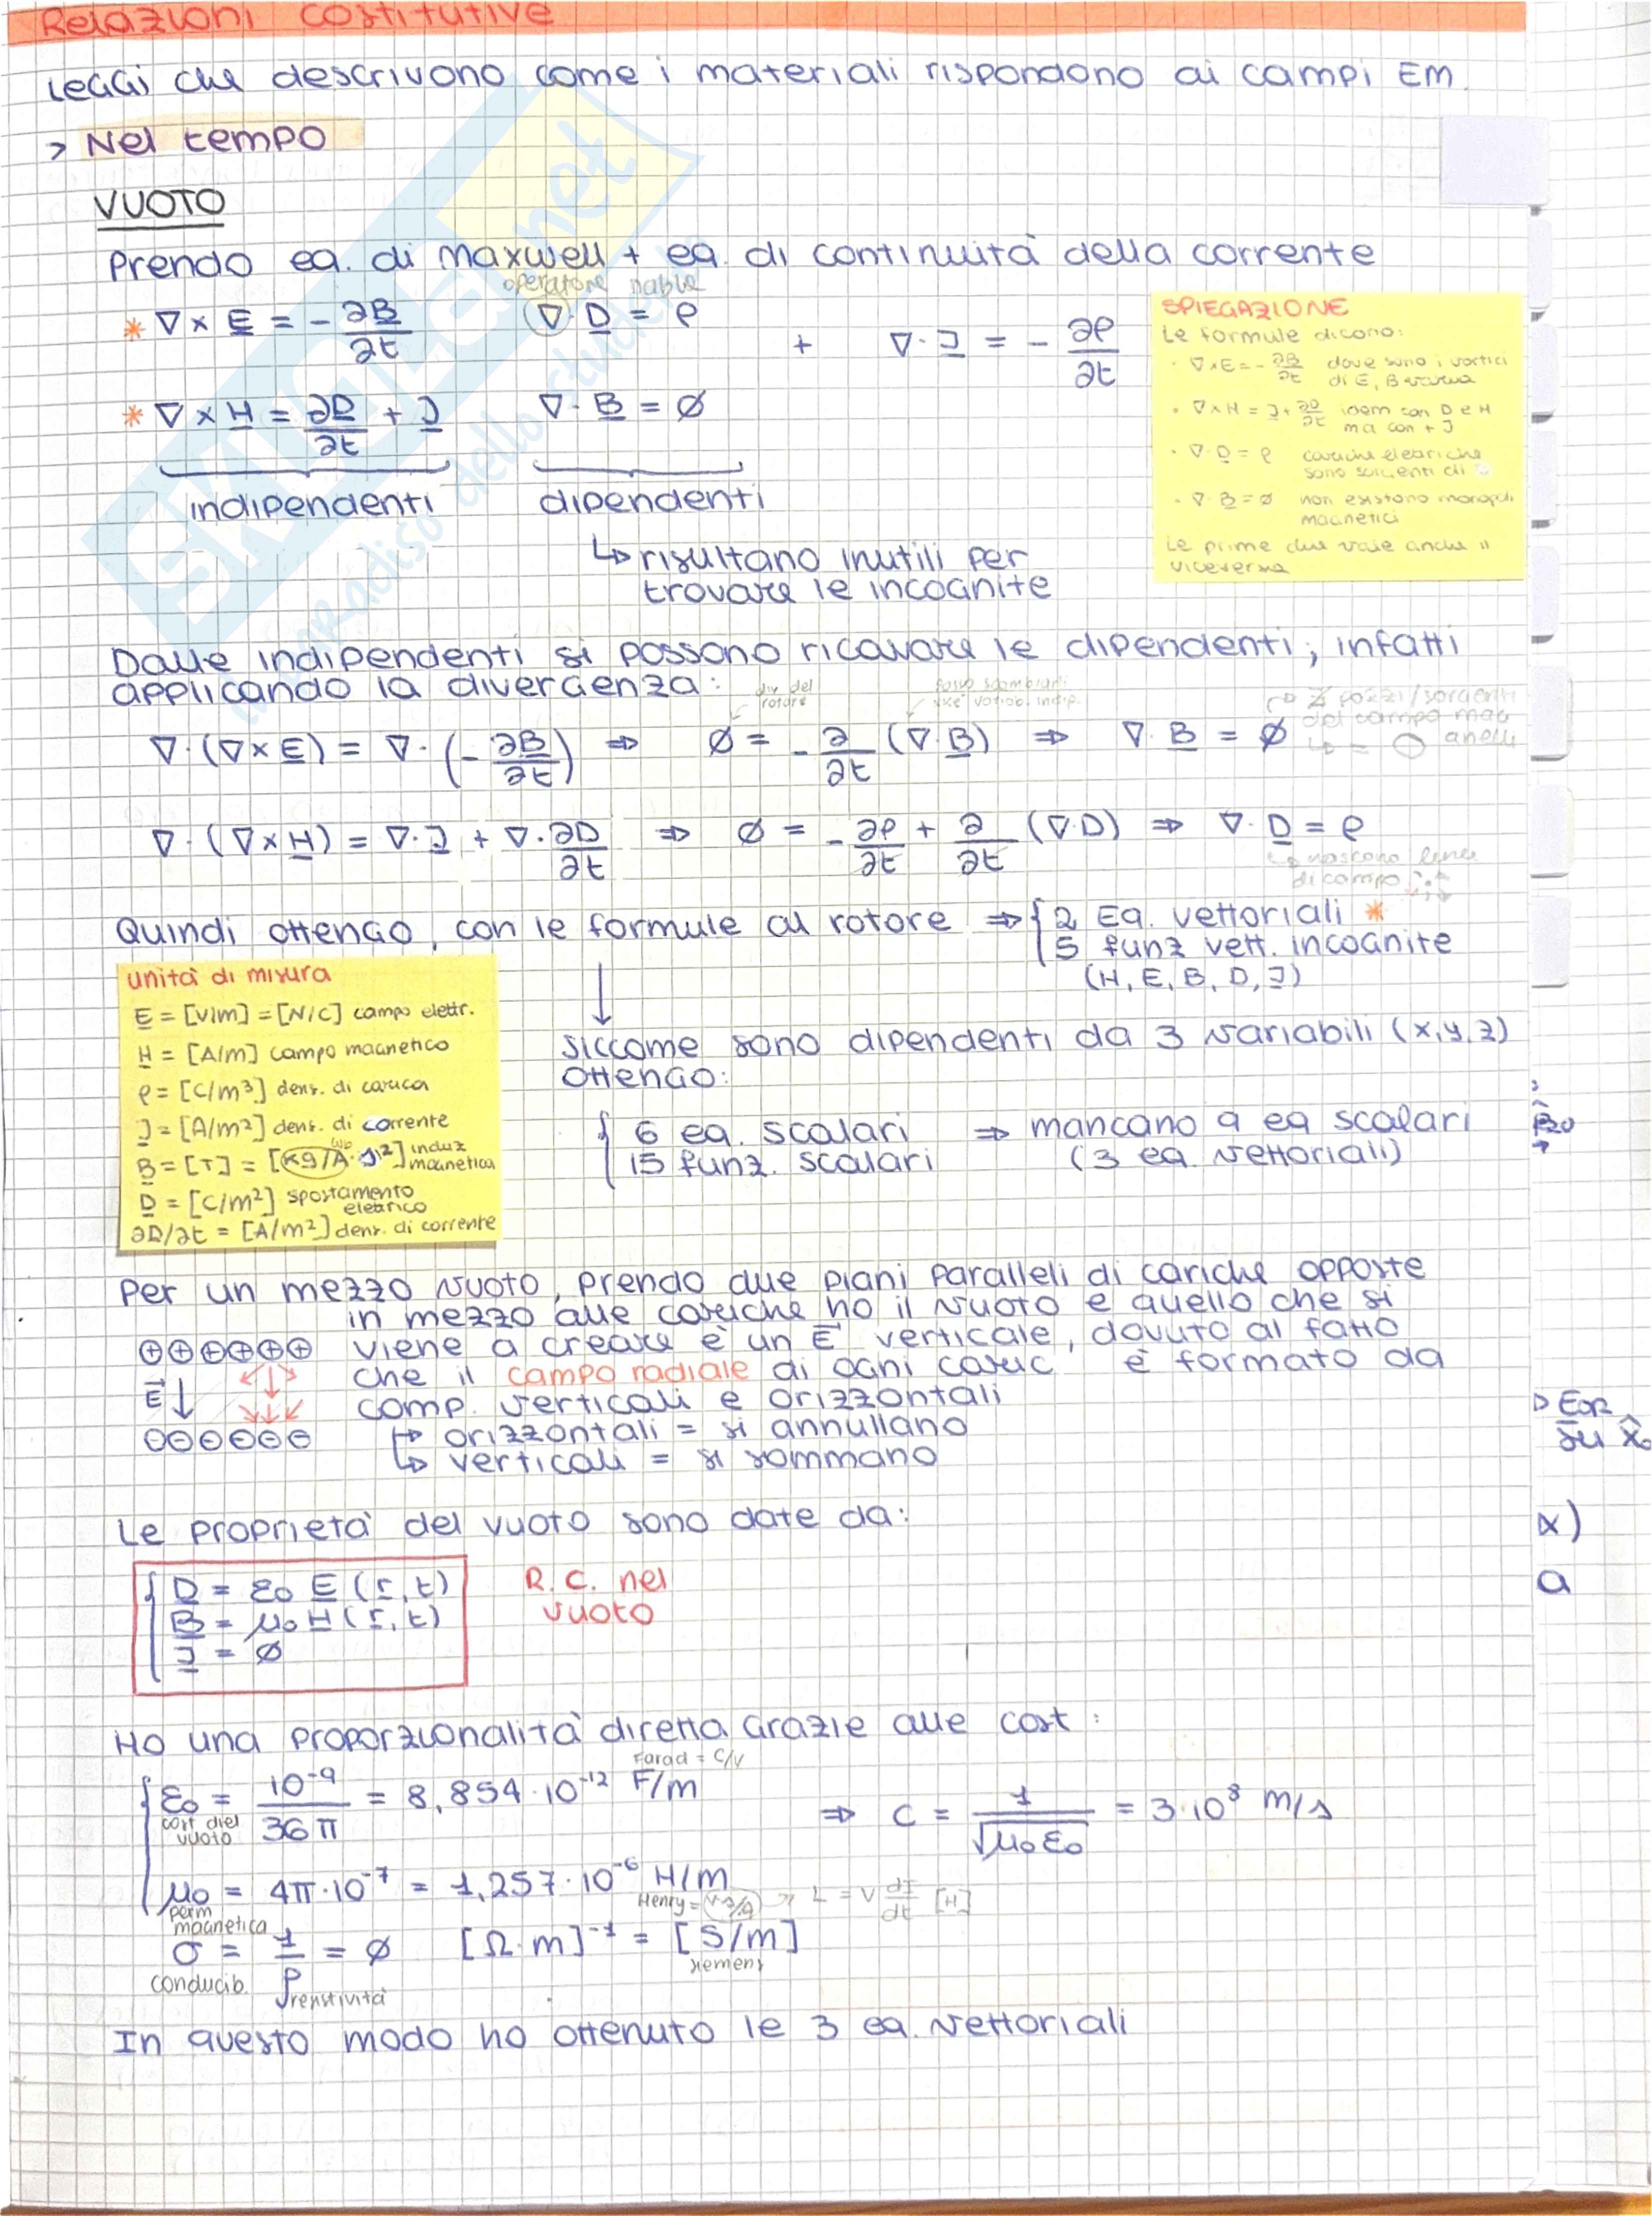 Relazioni costitutive
Leggi che descrivono come i materiali rispondono ai campi EM
> Nel tempo
VUOTO
Prendo eq. di Maxwell + eq. di continuità della corrente
operatore nabla
* ∇ × E = - ∂B/∂t   ∇ · D = ρ   +   ∇ · J = - ∂ρ/∂t
* ∇ × H = ∂D/∂t + J   ∇ · B = ∅
indipendenti   dipendenti
↳ risultano inutili per
trovare le incognite
SPIEGAZIONE
Le formule dicono:
· ∇×E = - ∂B/∂t dove sono i vortici
di E, B varia
· ∇×H = J + ∂D/∂t idem con D e H
ma con + J
· ∇·D = ρ cariche elettriche
sono sorgenti di
· ∇·B = ∅ non esistono monopoli
magnetici
Le prime due vale anche il
viceversa
Dalle indipendenti si possono ricavare le dipendenti; infatti
applicando la divergenza:
div del
rotore
posso scambiarli
variab. indip.
∇·(∇×E) = ∇·(-∂B/∂t) ⇒ ∅ = - ∂/∂t (∇·B) ⇒ ∇·B = ∅
∄ pozzi/sorgenti
del campo mag
↳ = ◯ anelli
∇·(∇×H) = ∇·J + ∇·∂D/∂t ⇒ ∅ = - ∂ρ/∂t + ∂/∂t (∇·D) ⇒ ∇·D = ρ
↳ nascono linee
di campo
Quindi ottengo, con le formule al rotore ⇒ { 2 Eq. vettoriali *
5 funz vett. incognite
(H, E, B, D, J)
unità di misura
E = [V/m] = [N/C] campo elettr.
H = [A/m] campo magnetico
ρ = [C/m³] dens. di carica
J = [A/m²] dens. di corrente
B = [T] = [kg/A·s²] induz
magnetica
D = [C/m²] spostamento
elettrico
∂D/∂t = [A/m²] dens. di corrente
↓
siccome sono dipendenti da 3 variabili (x,y,z)
ottengo:
{ 6 eq. scalari ⇒ mancano 9 eq scalari
15 funz. scalari (3 eq. vettoriali)
Per un mezzo vuoto, prendo due piani paralleli di cariche opposte
in mezzo alle cariche ho il vuoto e quello che si
⊕⊕⊕⊕⊕⊕ viene a creare è un E⃗ verticale, dovuto al fatto
che il campo radiale di ogni caric è formato da
E⃗↓ comp. verticali e orizzontali
⊖⊖⊖⊖⊖⊖ ↳ orizzontali = si annullano
↳ verticali = si sommano
Le proprietà del vuoto sono date da:
{ D = ε₀ E (r, t)
B = μ₀ H (r, t)
J = ∅
R.C. nel
vuoto
Ho una proporzionalità diretta grazie alle cost:
Farad = C/V
{ ε₀ = 10⁻⁹/36π = 8,854·10⁻¹² F/m ⇒ c = 1/√μ₀ε₀ = 3·10⁸ m/s
cost diel
vuoto
μ₀ = 4π·10⁻⁷ = 1,257·10⁻⁶ H/m
perm
magnetica
Henry = V·s/A → L = V dI/dt [H]
σ = 1/ρ = ∅   [Ω·m]⁻¹ = [S/m]
siemens
conducib.   resistività
In questo modo ho ottenuto le 3 eq. vettoriali
SKUOLA.net
il paradiso dello studente
x)
a